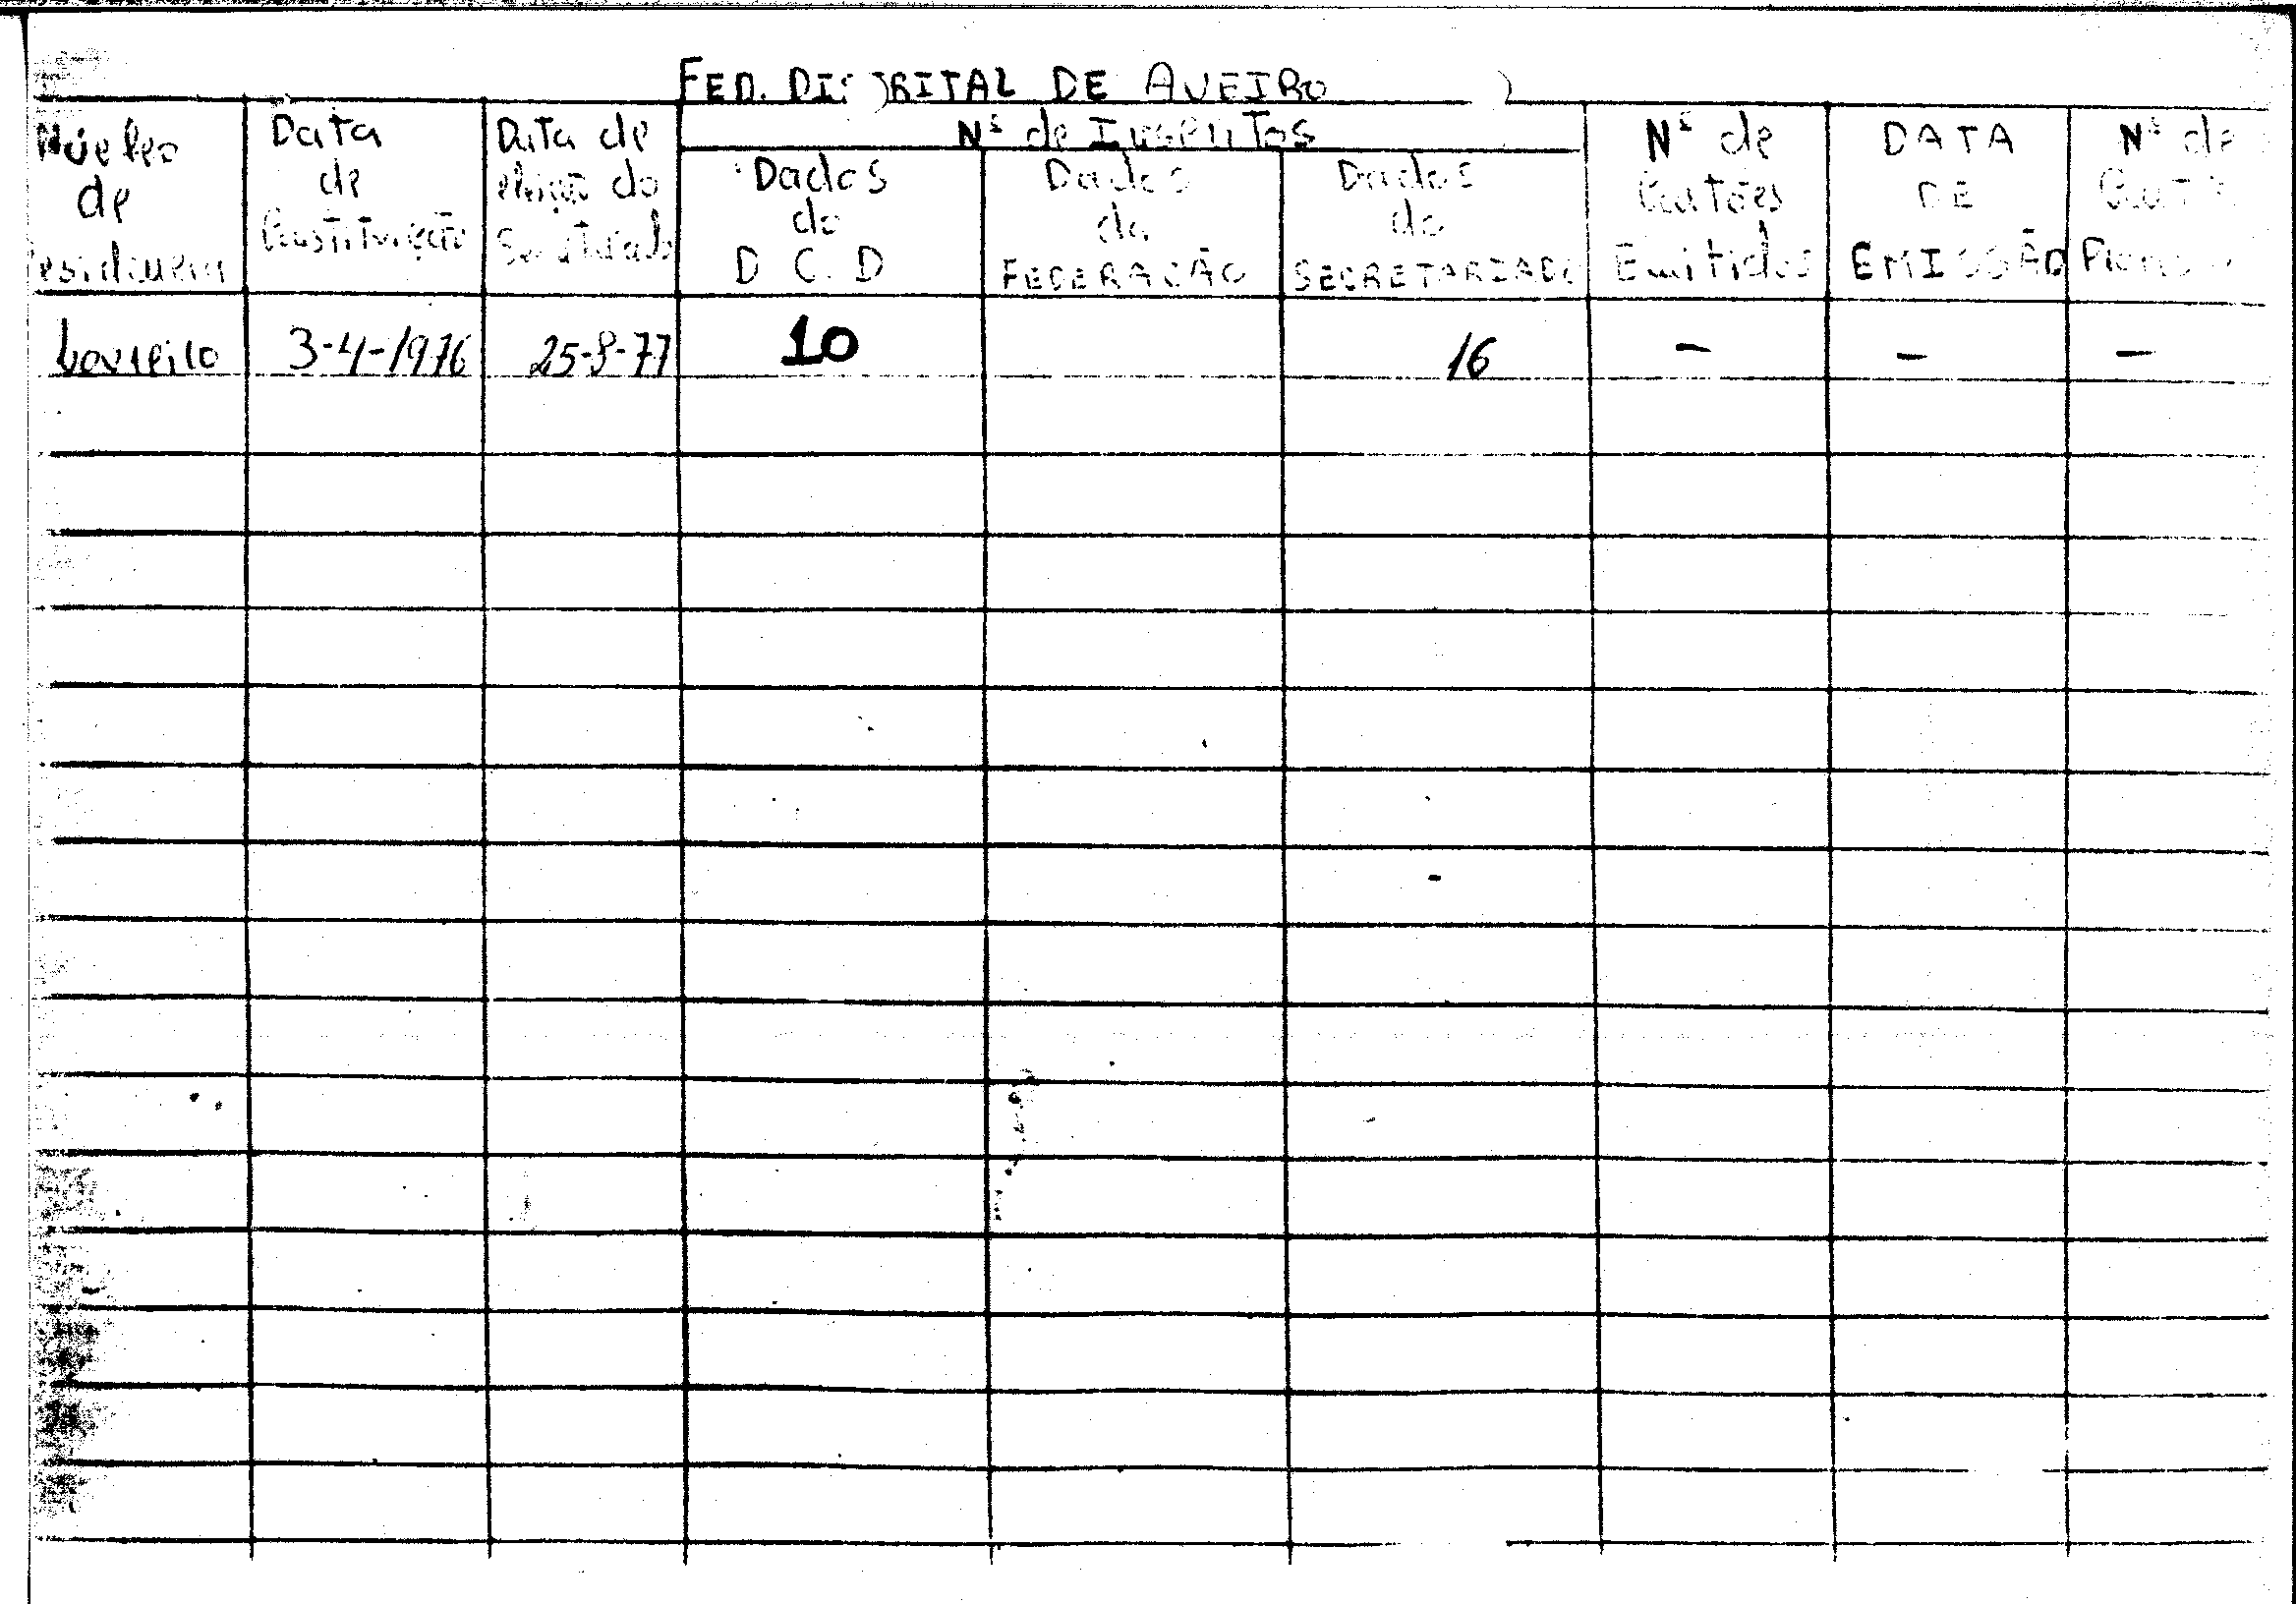 FED. DISTRITAL DE AVEIRO
Núcleo de Residência
Data de Constituição
Data de eleição do Secretariado
Nº de Inscritos
Dados do D.C.D
Dados da FEDERAÇÃO
Dados do SECRETARIADO
Nº de Cartões Emitidos
DATA DE EMISSÃO
Nº de
Loureiro 3-4-1976 25-9-77 10 16 - - -